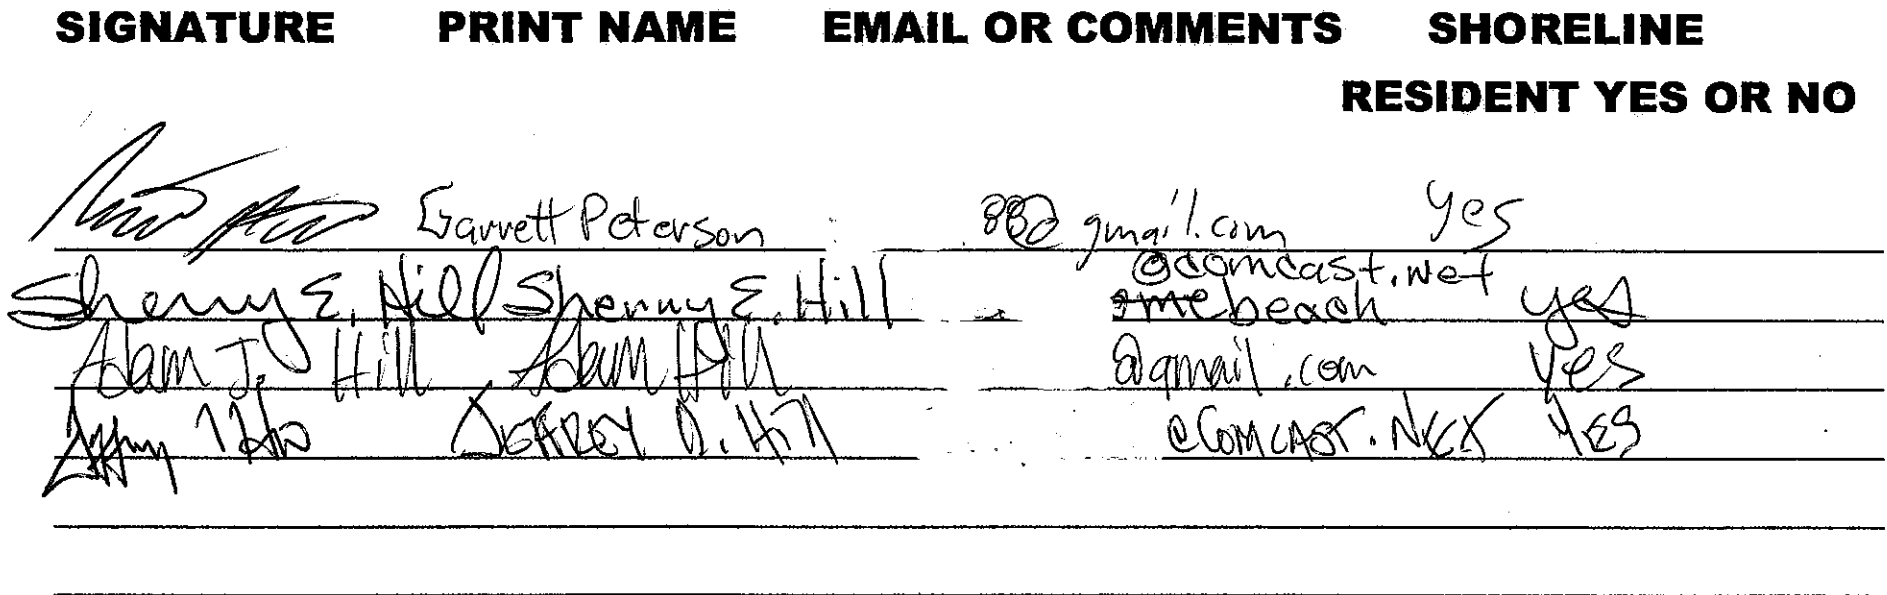 SIGNATURE PRINT NAME EMAIL OR COMMENTS SHORELINE
RESIDENT YES OR NO
Garrett Peterson 88@gmail.com yes
@comcast.net
Sherry E. Hill Sherry E. Hill beach yes
Adam J. Hill Adam Hill @gmail.com yes
JEFFREY D. Hill @COMCAST.NET YES